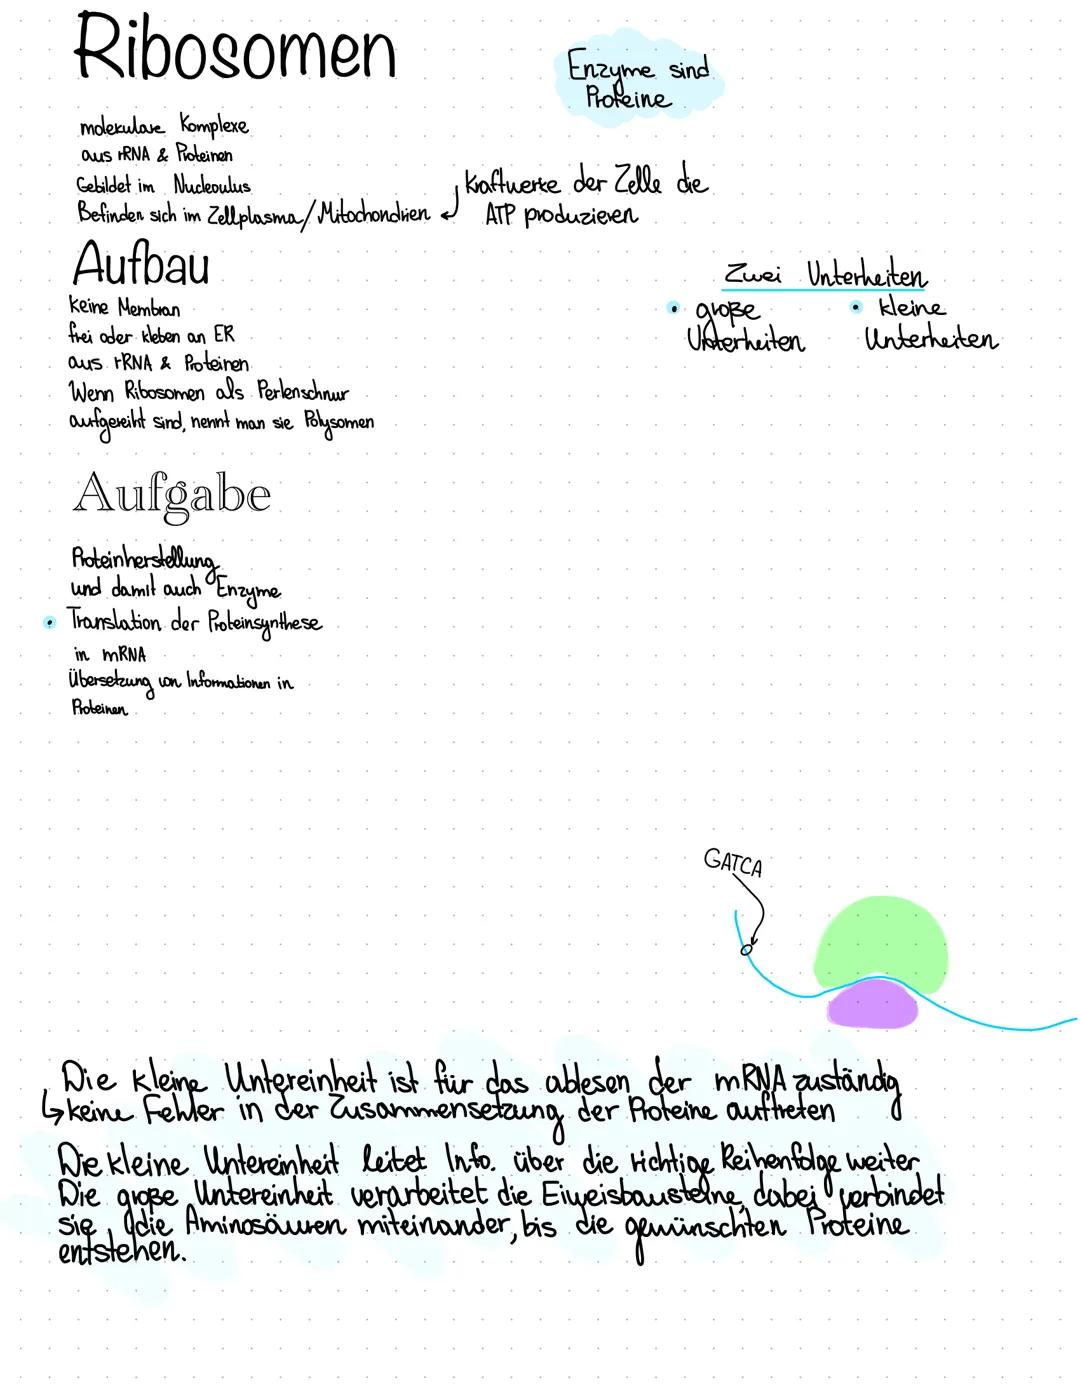 Ribosomen
Enzyme sind
Proteine
molekulare Komplexe
aus rRNA & Proteinen
Gebildet im Nucleoulus
Befinden sich im Zellplasma/Mitochondrien
Kraftwerke der Zelle die
ATP produzieren
Aufbau
Keine Membran
frei oder kleben an ER
aus rRNA & Proteinen
Wenn Ribosomen als Perlenschnur
aufgereiht sind, nennt man sie Polysomen
Zwei Unterheiten
• große
Unterheiten
• kleine
Unterheiten
Aufgabe
Proteinherstellung
und damit auch Enzyme
• Translation der Proteinsynthese
in mRNA
Übersetzung von Informationen in
Proteinen
GATCA
Die kleine Untereinheit ist für das ablesen der mRNA zuständig
↳ keine Fehler in der Zusammensetzung der Proteine auftreten
Die kleine Untereinheit leitet Info. über die richtige Reihenfolge weiter
Die große Untereinheit verarbeitet die Eiweisbausteine, dabei verbindet
sie die Aminosäuren miteinander, bis die gewünschten Proteine
entstehen.